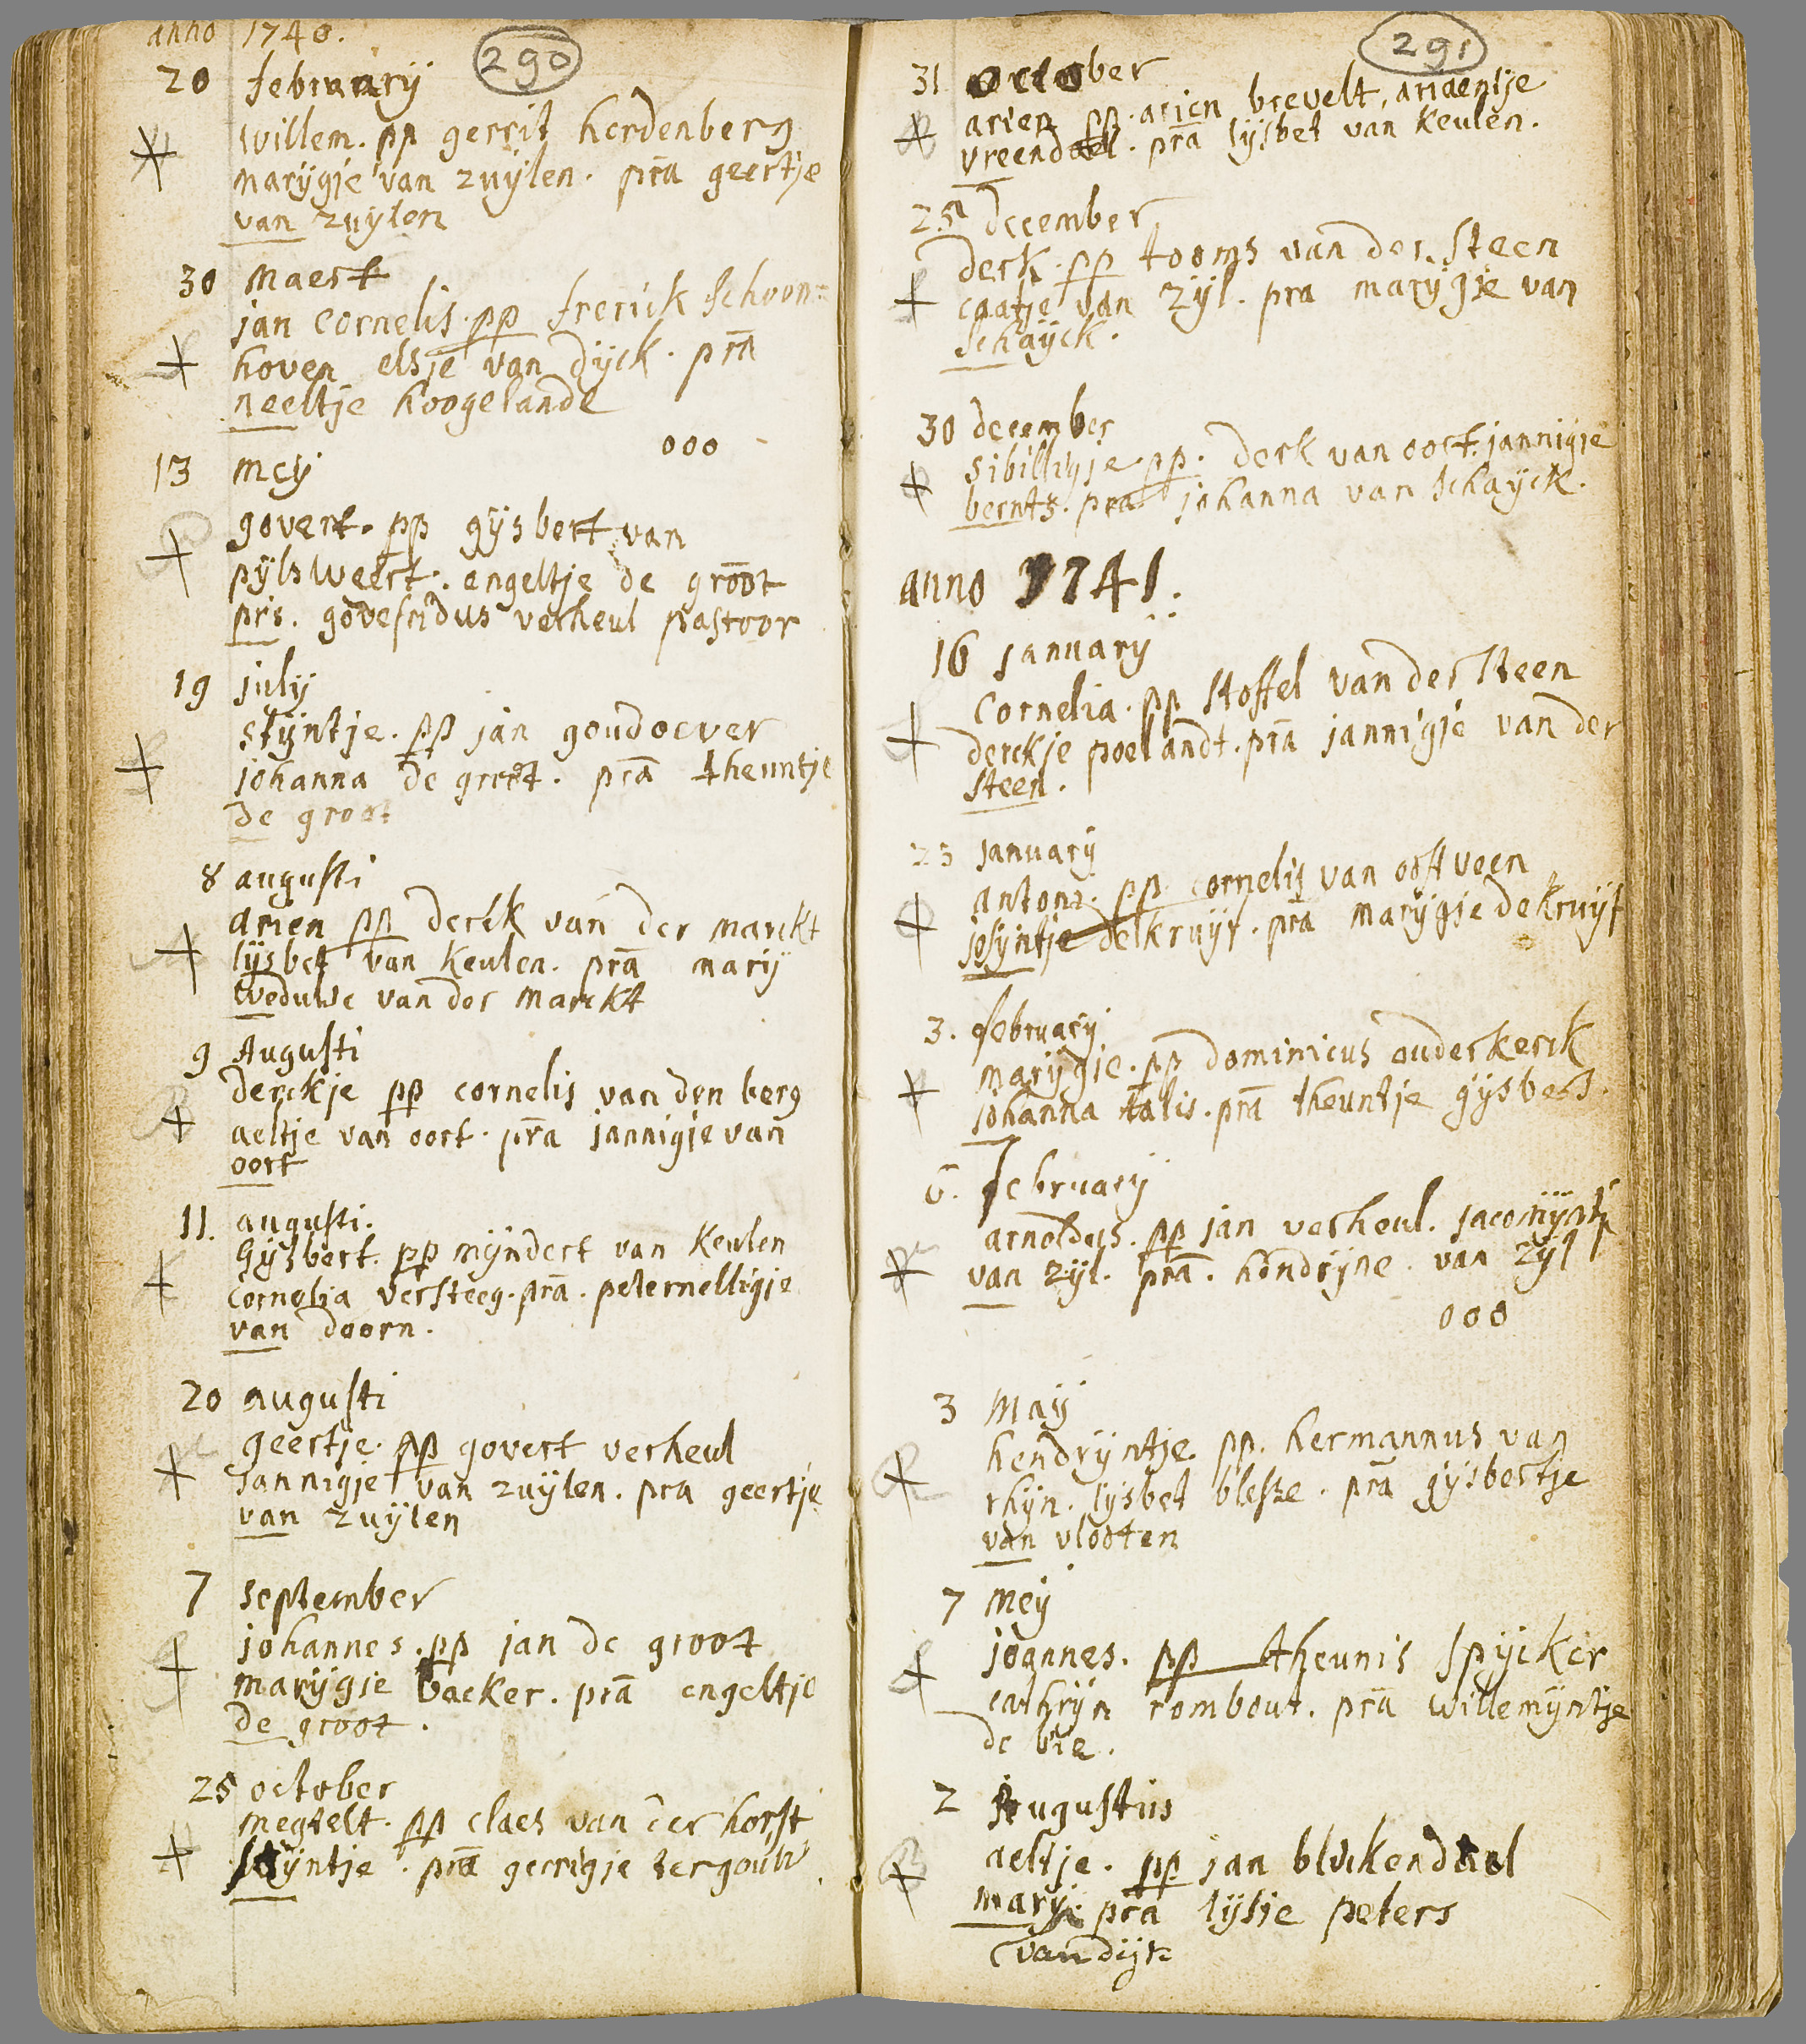 anno 1740.
290
20 februarij
willem. pp gerrit herdenberg
marijgie van zuijlen. prā geertje
van zuijlen
30 maert
jan cornelis. pp frerick schoon=
hoven elsje van dijck. prā
neeltje hoogelande
000
13 meij
govert. pp gijsbert van
pijlsweert. engeltje de groot
prs. govefridus verheul pastoor
19 julij
stijntje. pp jan goudoever
johanna de groot. prā theuntje
de groot
8 augusti
arien pp derck van der marckt
lijsbet van keulen. prā marij
weduwe van der marckt
9 Augusti
derckje pp cornelis van den berg
aeltje van oort. prā jannigje van
oort
11. augusti.
gijsbert. pp mijndert van keulen
cornelia versteeg. prā. peternelligje
van doorn.
20 augusti
geertje. pp govert verheul
jannigje van zuijlen. pra geertje
van zuijlen
7 september
johannes. pp jan de groot
marijgie backer. prā engeltje
de groot.
25 october
megtelt. pp claes van der horst
stijntje. prā gerrigje tergouw
291
31 october
arien pp. arien brevelt, ariaentje
vreendael. prā lijsbet van keulen.
25 december
derk. pp tooms van der steen
caatje van zijl. pra marijgie van
schaijck.
30 december
sibilligje pp. derk van oort. jannigje
bernts. pra johanna van schaijck.
anno 1741.
16 januarij
cornelia. pp stoffel van der steen
derckje poelandt. prā jannigje van der
steen.
23 januarij
antoni. pp cornelis van oostveen
josijntje de kruijf. prā marijgie de kruijf
3. februarij
marijgie. pp dominicus ouderkerck
johanna talis. prā theuntje gijsbers.
6. februarij
arnoldus. pp jan verheul. jacomijntj
van zijl. prā. hendrijne van zijl
000
3 maij
hendrijntje pp. hermannus van
rhijn. lijsbet bleske. prā gijsbertje
van vlooten
7 meij
joannes. pp theunis spijcker
cathrijn rombout. prā willemijntje
de bie.
2 Augustus
aeltje. pp jan blickendael
marij. prā lijsje peters
van dijk